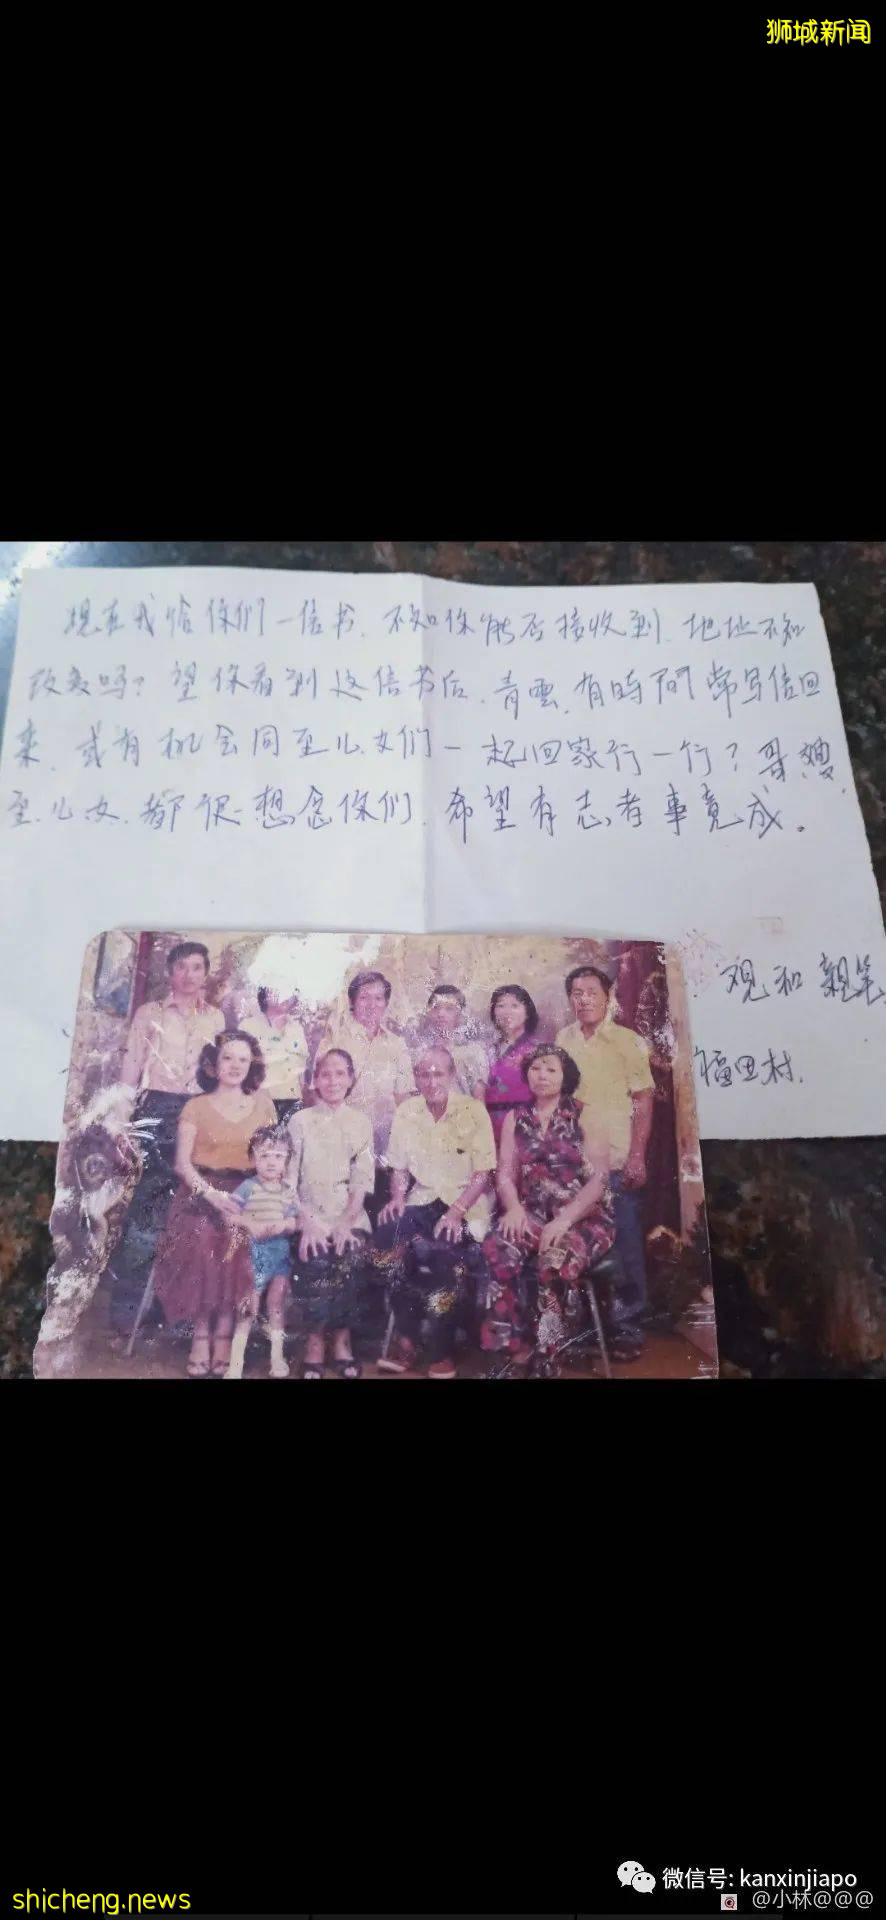 狮城新闻
现在我给你们一信书.不知你能否接收到.地址不知
改变吗?望你看到这信书后.青雲.有時间常写信回
来.或有机会同至儿.女们一起回家行一行?哥嫂.
至.儿.女.都很想念你们.希望有志者事竟成。
观和親笔
福田村.
微信号: kanxinjiapo
@小林@@@
shicheng.news